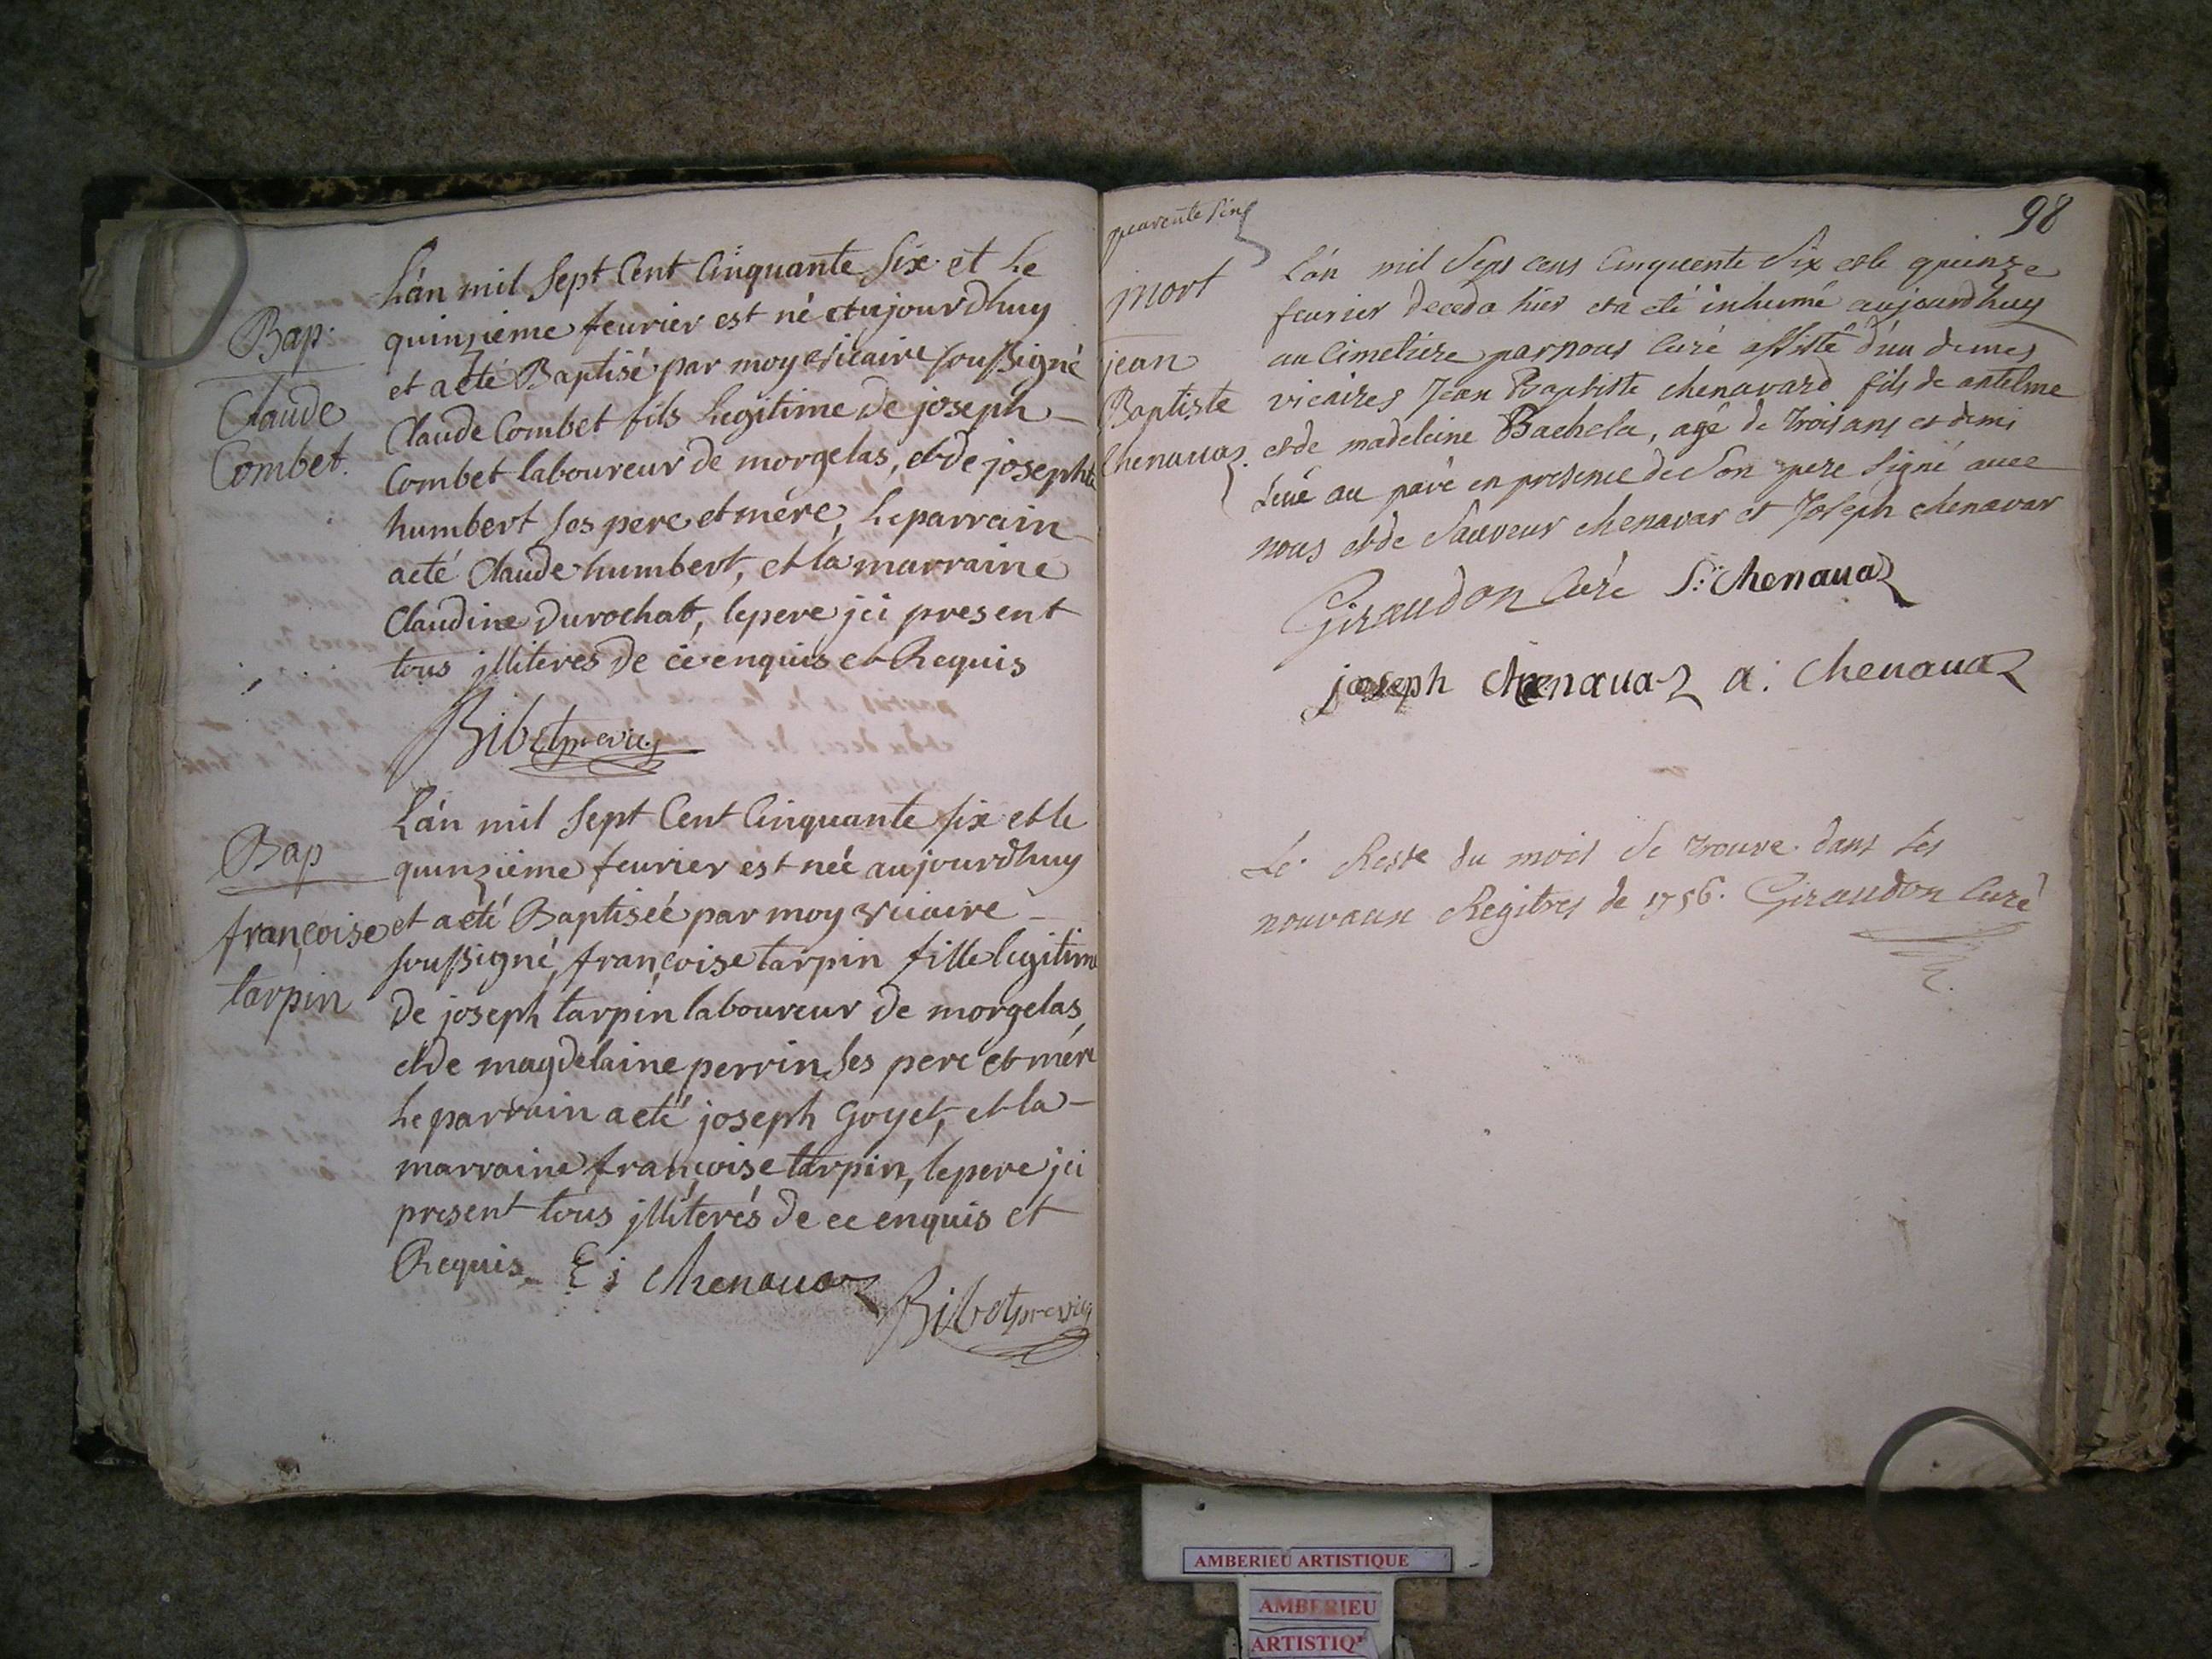 Bap.
Claude
Combet.
L'an mil Sept Cent Cinquante Six et Le
quinzieme feurier est né aujourdhuy
et a eté Baptisé par moy vicaire soussigné
Claude Combet fils Legitime de joseph
Combet laboureur de morgelas, et de josephte
humbert ses pere et mére, Le parrain
a eté Claude humbert, et la marraine
Claudine Durochat, le pere jci present
tous jlliteres de ce enquis et Requis
Bibet pre vic.
Bap
françoise
tarpin
L'an mil Sept Cent Cinquante six et le
quinzieme feurier est neé aujourdhuy
et a eté Baptiseé par moy vicaire
soussigné, françoise tarpin fille legitime
de joseph tarpin laboureur de morgelas,
et de magdelaine perrin ses pere et mére
Le parrain a eté joseph Goyet, et la
marraine françoise tarpin, le pere jci
present tous jllíterés de ce enquis et
Requis
chenauaz
Bibet pre vic
quarente sinq
98
mort
jean
Baptiste
chenauaz.
L'an mil Sept cens Cinquente Six et le quinze
feurier deceda hier et a eté inhumé aujourdhuy
au Cimetiere par nous Curé assisté d'un de mes
vicaires Jean Baptiste chenavard fils de antelme
et de madeleine Bachela, agé de trois ans et demi
Levé au pavé en presence de Son pere signé avec
nous et de Sauveur chenavar et Joseph chenavar
Giraudon Curé S: chenauaz
joseph chenauaz a: chenauaz
Le Reste du mois Se trouve dans les
nouvaux Regitres de 1756. Giraudon Curé
AMBERIEU ARTISTIQUE
AMBERIEU
ARTISTIQ